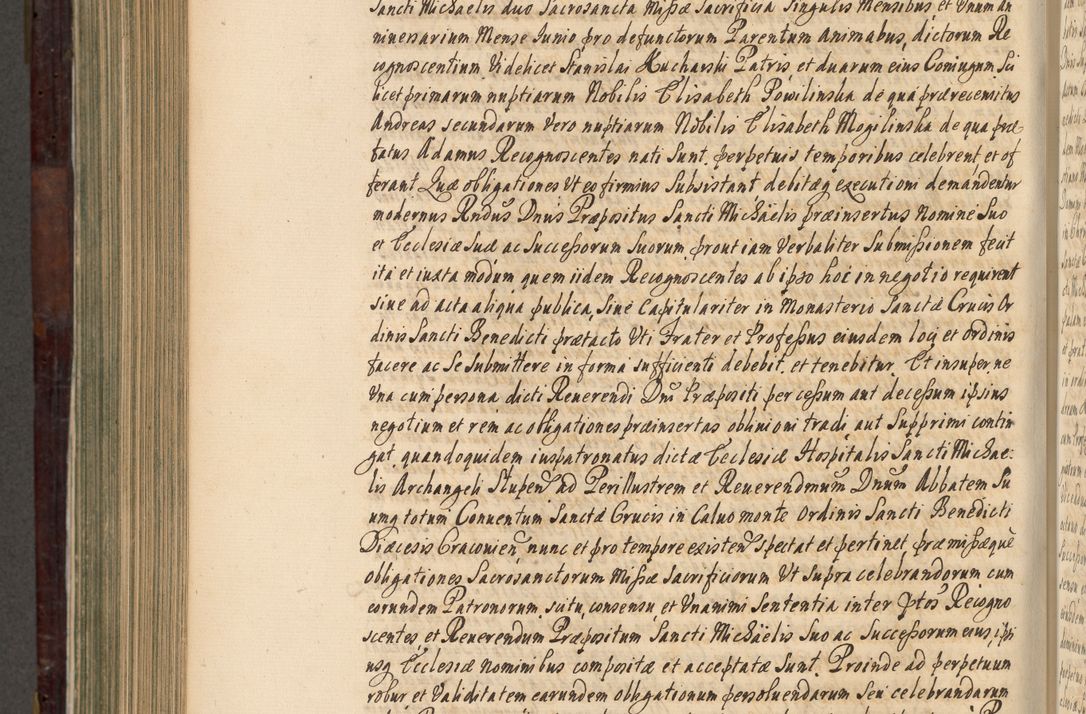 Sancti Michaelis duo Sacrosancta Missæ Sacrificia Singulis Mensibus et Unum an
niversarium Mense Iunio pro defunctorum Parentum animabus, dictorum Re
cognoscentium Videlicet Stanislai Kucharski Patris et duarum eius Coniugum Sci
licet primarum nuptiarum Nobilis Elisabeth Powilinska de qua prærecensitus
Andreas secundarum vero nuptiarum Nobilis Elisabeth Mogilinska de qua præ
fatus Adamus Recognoscentes nati Sunt, perpetuis temporibus celebrent et of
ferant Quæ obligationes Ut eo firmius Subsistant debitæq executioni demandentur
modernus Rndus Dnus Præpositus Sancti Michäelis præinsertus Nomine Suo
et Ecclesiæ Suæ ac Successorum Suorum prout iam Verbaliter Submissionem fecit
ita et iuxta modum quem iidem Recognoscentes ab ipso hoc in negotio requirent
Sive ad acta aliqua publica, Sive Capitulariter in Monasterio Sanctæ Crucis Or
dinis Sancti Benedicti prætacto Uti Frater et Professus eiusdem loci et ordinis
facere ac Se Submittere in forma Sufficienti debebit, et tenebitur. Et insuper ne
Una cum persona dicti Reverendi Dni Præpositi per cessum aut decessum ipsius
negotium et rem ac obligationes præinsertas oblivioni tradi aut Supprimi contin
gat, quandoquidem iuspatronatus dictæ Ecclesiæ Hospitalis Sancti Michae:
lis Archangeli Stupen ad Perillustrem et Reverendmum Dnum Abbatem Su
umq totum Conventum Sanctæ Crucis in Calvo monte Ordinis Sancti Benedicti
Diæcesis Cracovien nunc et pro tempore existen Spectat et pertinet, præmissæquè
obligationes Sacrosanctorum Missæ Sacrificiorum Ut Supra celebrandorum cum
eorundem Patronorum, scitu, consensu, et Unanimi Sententia inter Ptos Recogno
scentes, et Reverendum Præpositum Sancti Michäelis Suo ac Successorum eius, ipsi
usq Ecclesiæ nominibus compositæ et acceptatæ Sunt. Proinde ad perpetuum
robur et Validitatem earundem obligationum persolvendarum Seu celebrandarum